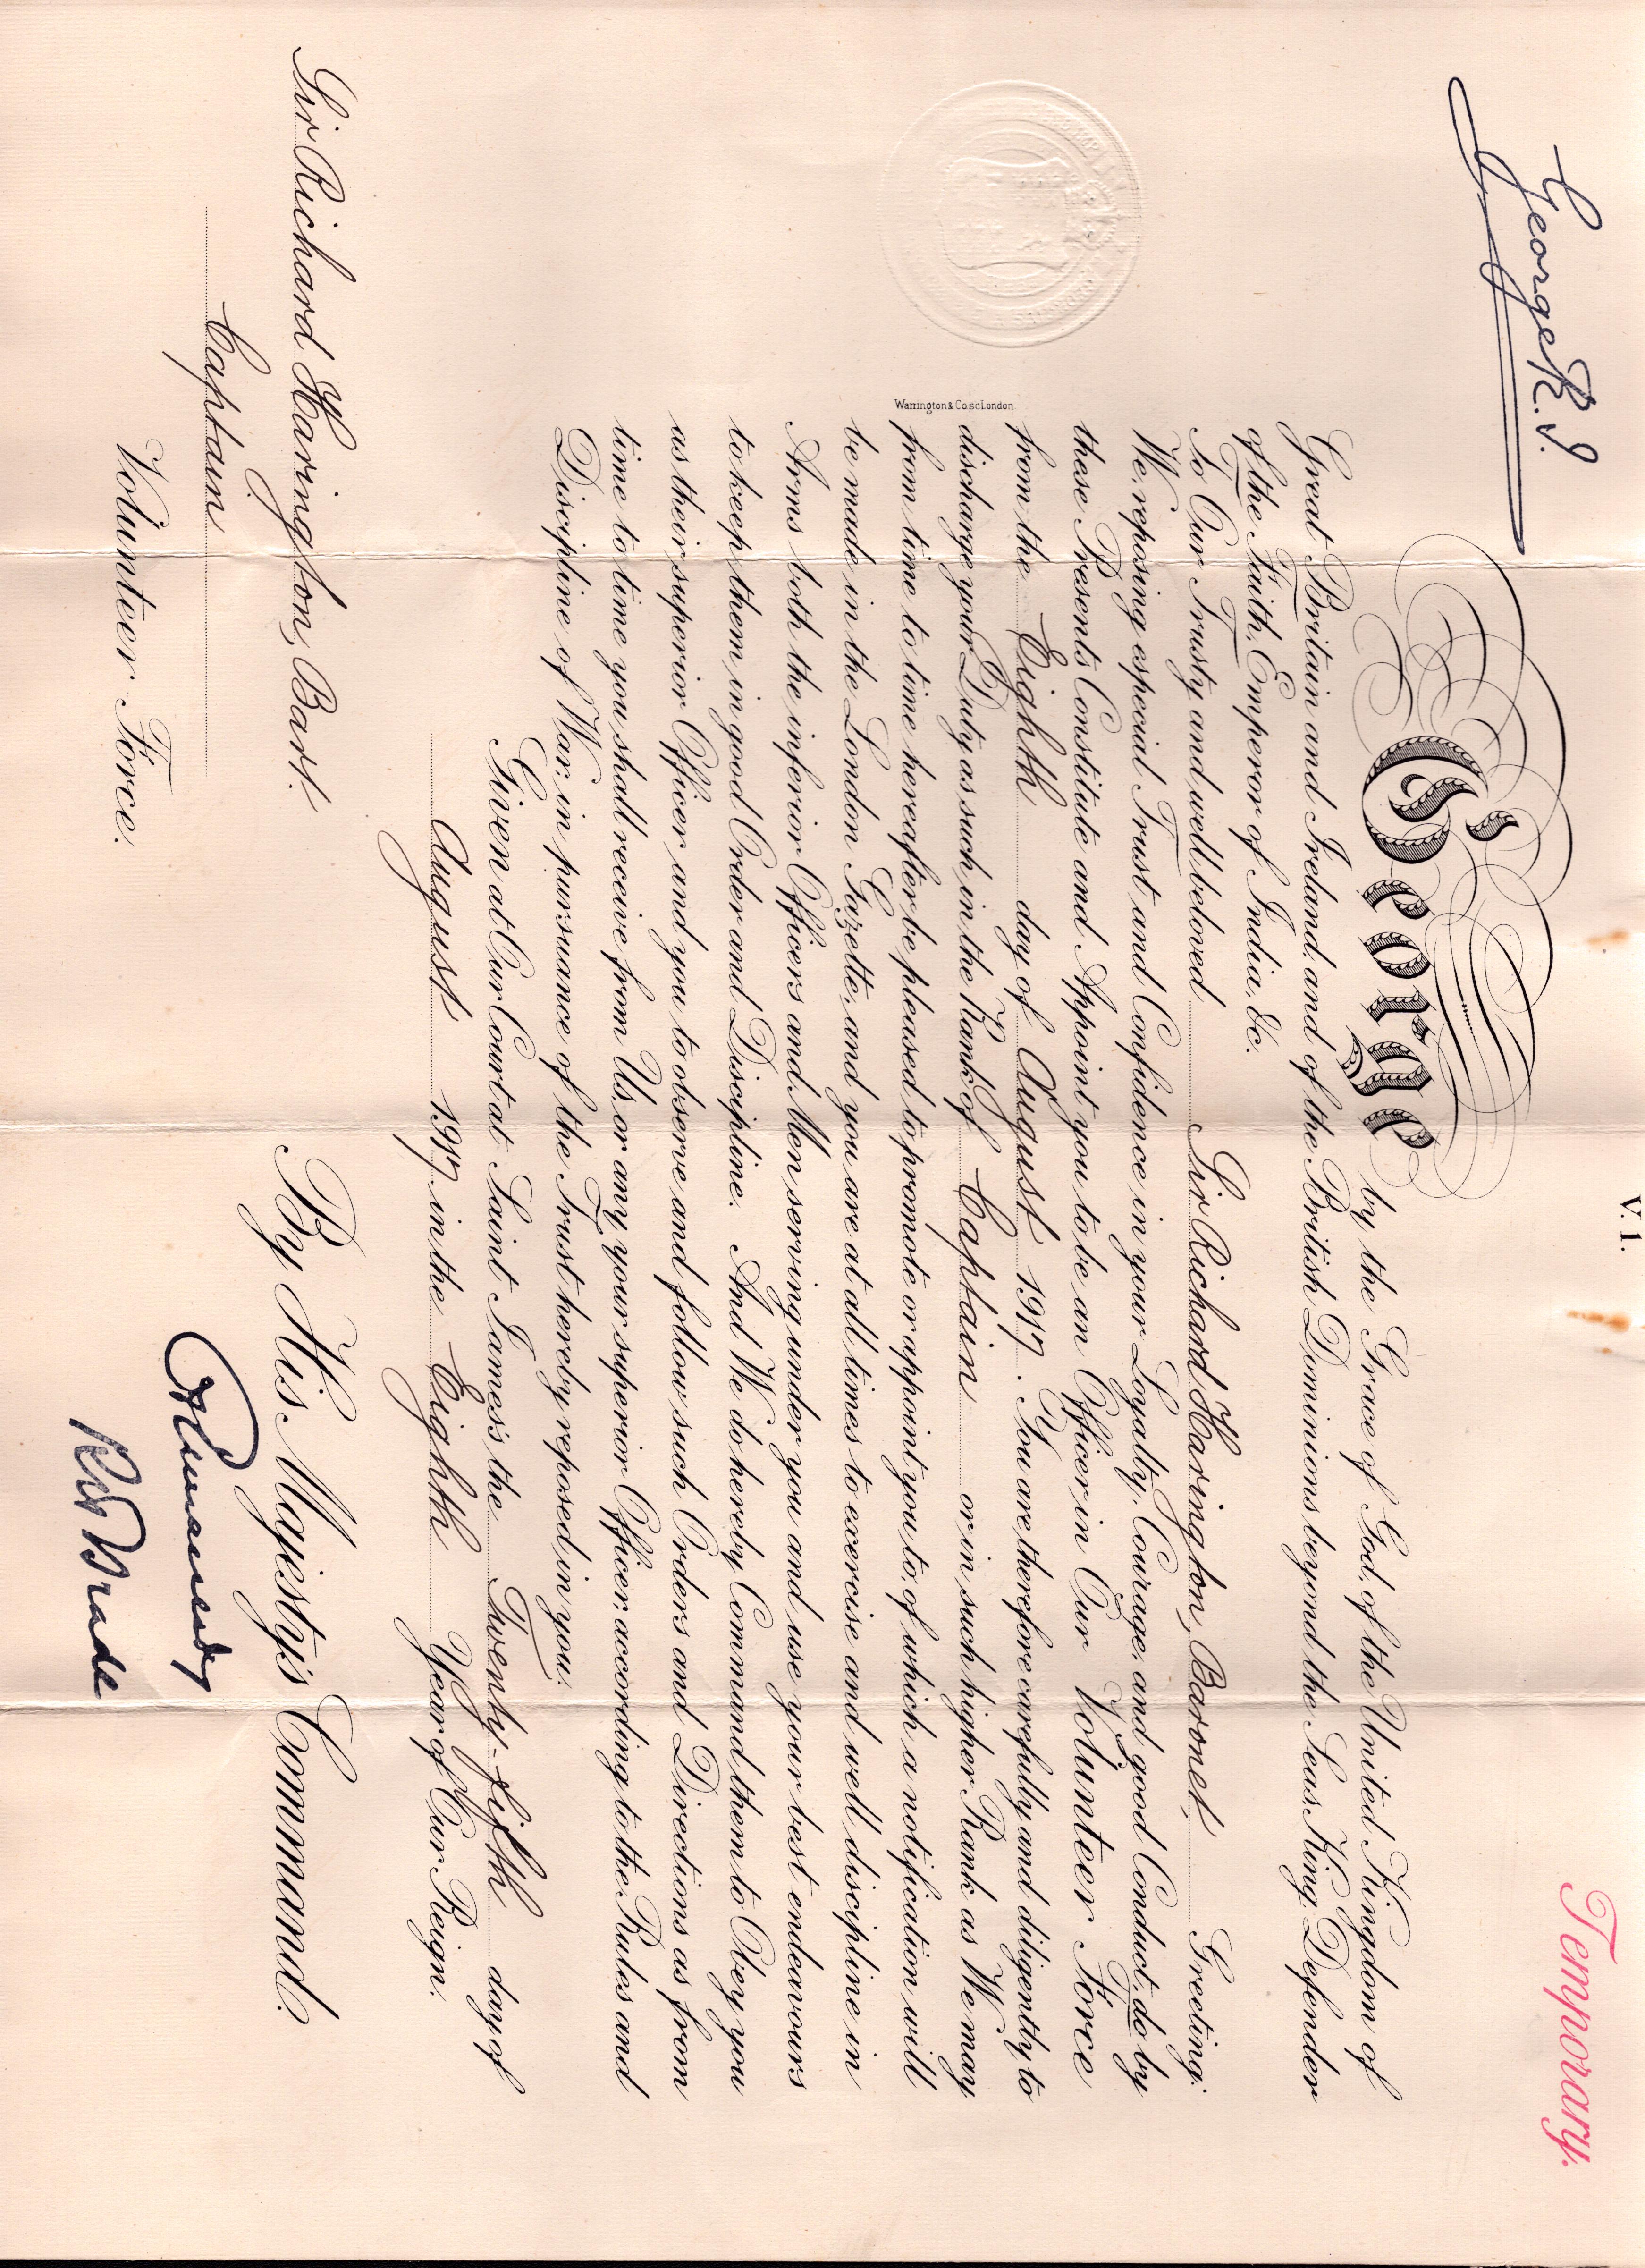 V. 1.
Temporary.
George R. I.
George by the Grace of God, of the United Kingdom of
Great Britain and Ireland, and of the British Dominions beyond the Seas, King, Defender
of the Faith, Emperor of India, &c.
To Our Trusty and well beloved Sir Richard Harington, Baronet, Greeting:
We, reposing especial Trust and Confidence in your Loyalty, Courage, and good Conduct, do by
these Presents Constitute and Appoint you to be an Officer in Our Volunteer Force
from the Eighth day of August 1917. You are therefore carefully and diligently to
discharge your Duty as such in the Rank of Captain or in such higher Rank as We may
from time to time hereafter be pleased to promote or appoint you to, of which a notification will
be made in the London Gazette, and you are at all times to exercise and well discipline in
Arms both the inferior Officers and Men serving under you and use your best endeavours
to keep them in good Order and Discipline. And We do hereby Command them to Obey you
as their superior Officer and you to observe and follow such Orders and Directions as from
time to time you shall receive from Us, or any your superior Officer, according to the Rules and
Discipline of War, in pursuance of the Trust hereby reposed in you.
Given at Our Court at Saint James's the Twenty-fifth day of
August 1917 in the Eighth Year of Our Reign.
By His Majesty's Command.
Sir Richard Harington, Bart.
Captain
Volunteer Force.
R H Brade
Warrington & Co sc London